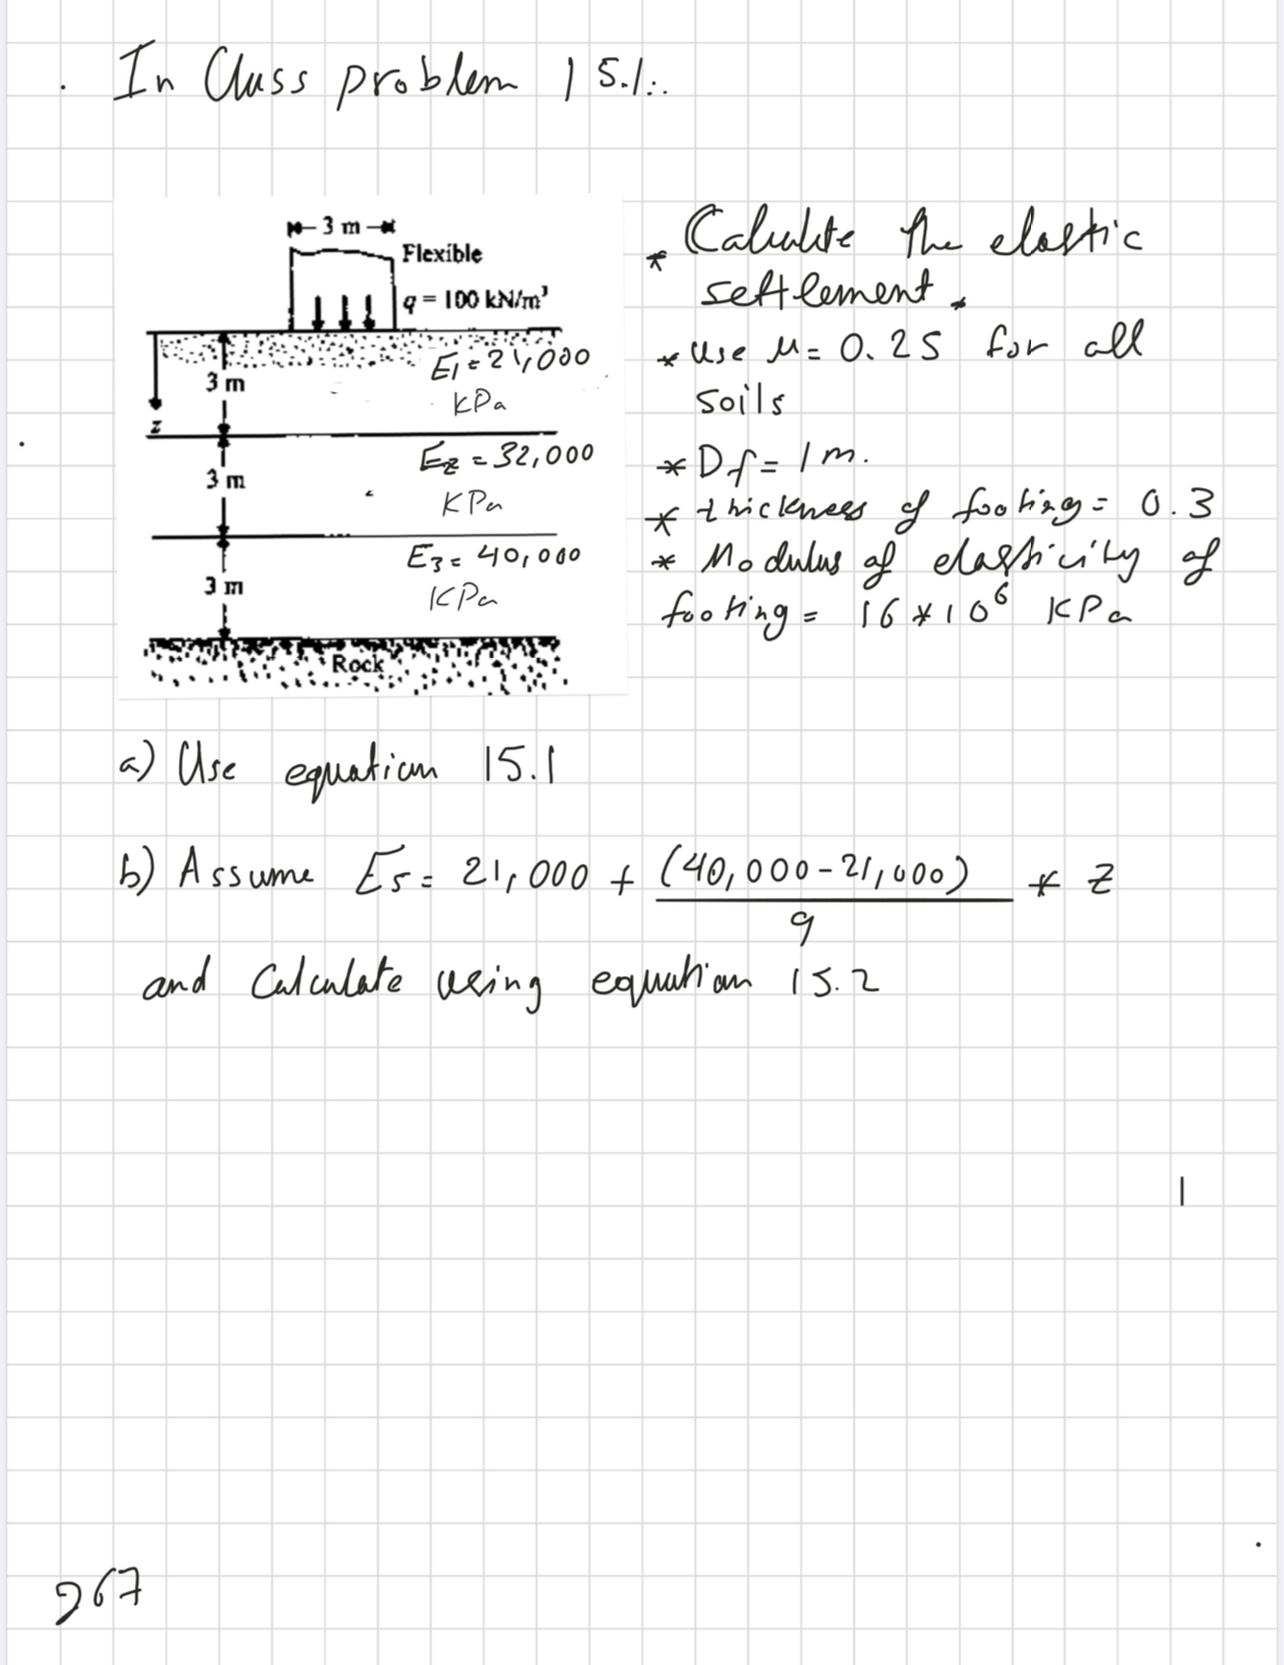 In Class problem 15.1:.
3 m
Flexible
q = 100 kN/m³
E1 = 21,000
KPa
3 m
z
E2 = 32,000
KPa
3 m
E3 = 40,000
KPa
3 m
Rock
* Calculate the elastic
settlement.
* Use μ = 0.25 for all
soils
* Df = 1 m.
* thickness of footing = 0.3
* Modulus of elasticity of
footing = 16 * 10⁶ KPa
a) Use equation 15.1
b) Assume Es = 21,000 + (40,000 - 21,000) / 9 * z
and Calculate using equation 15.2
1
267